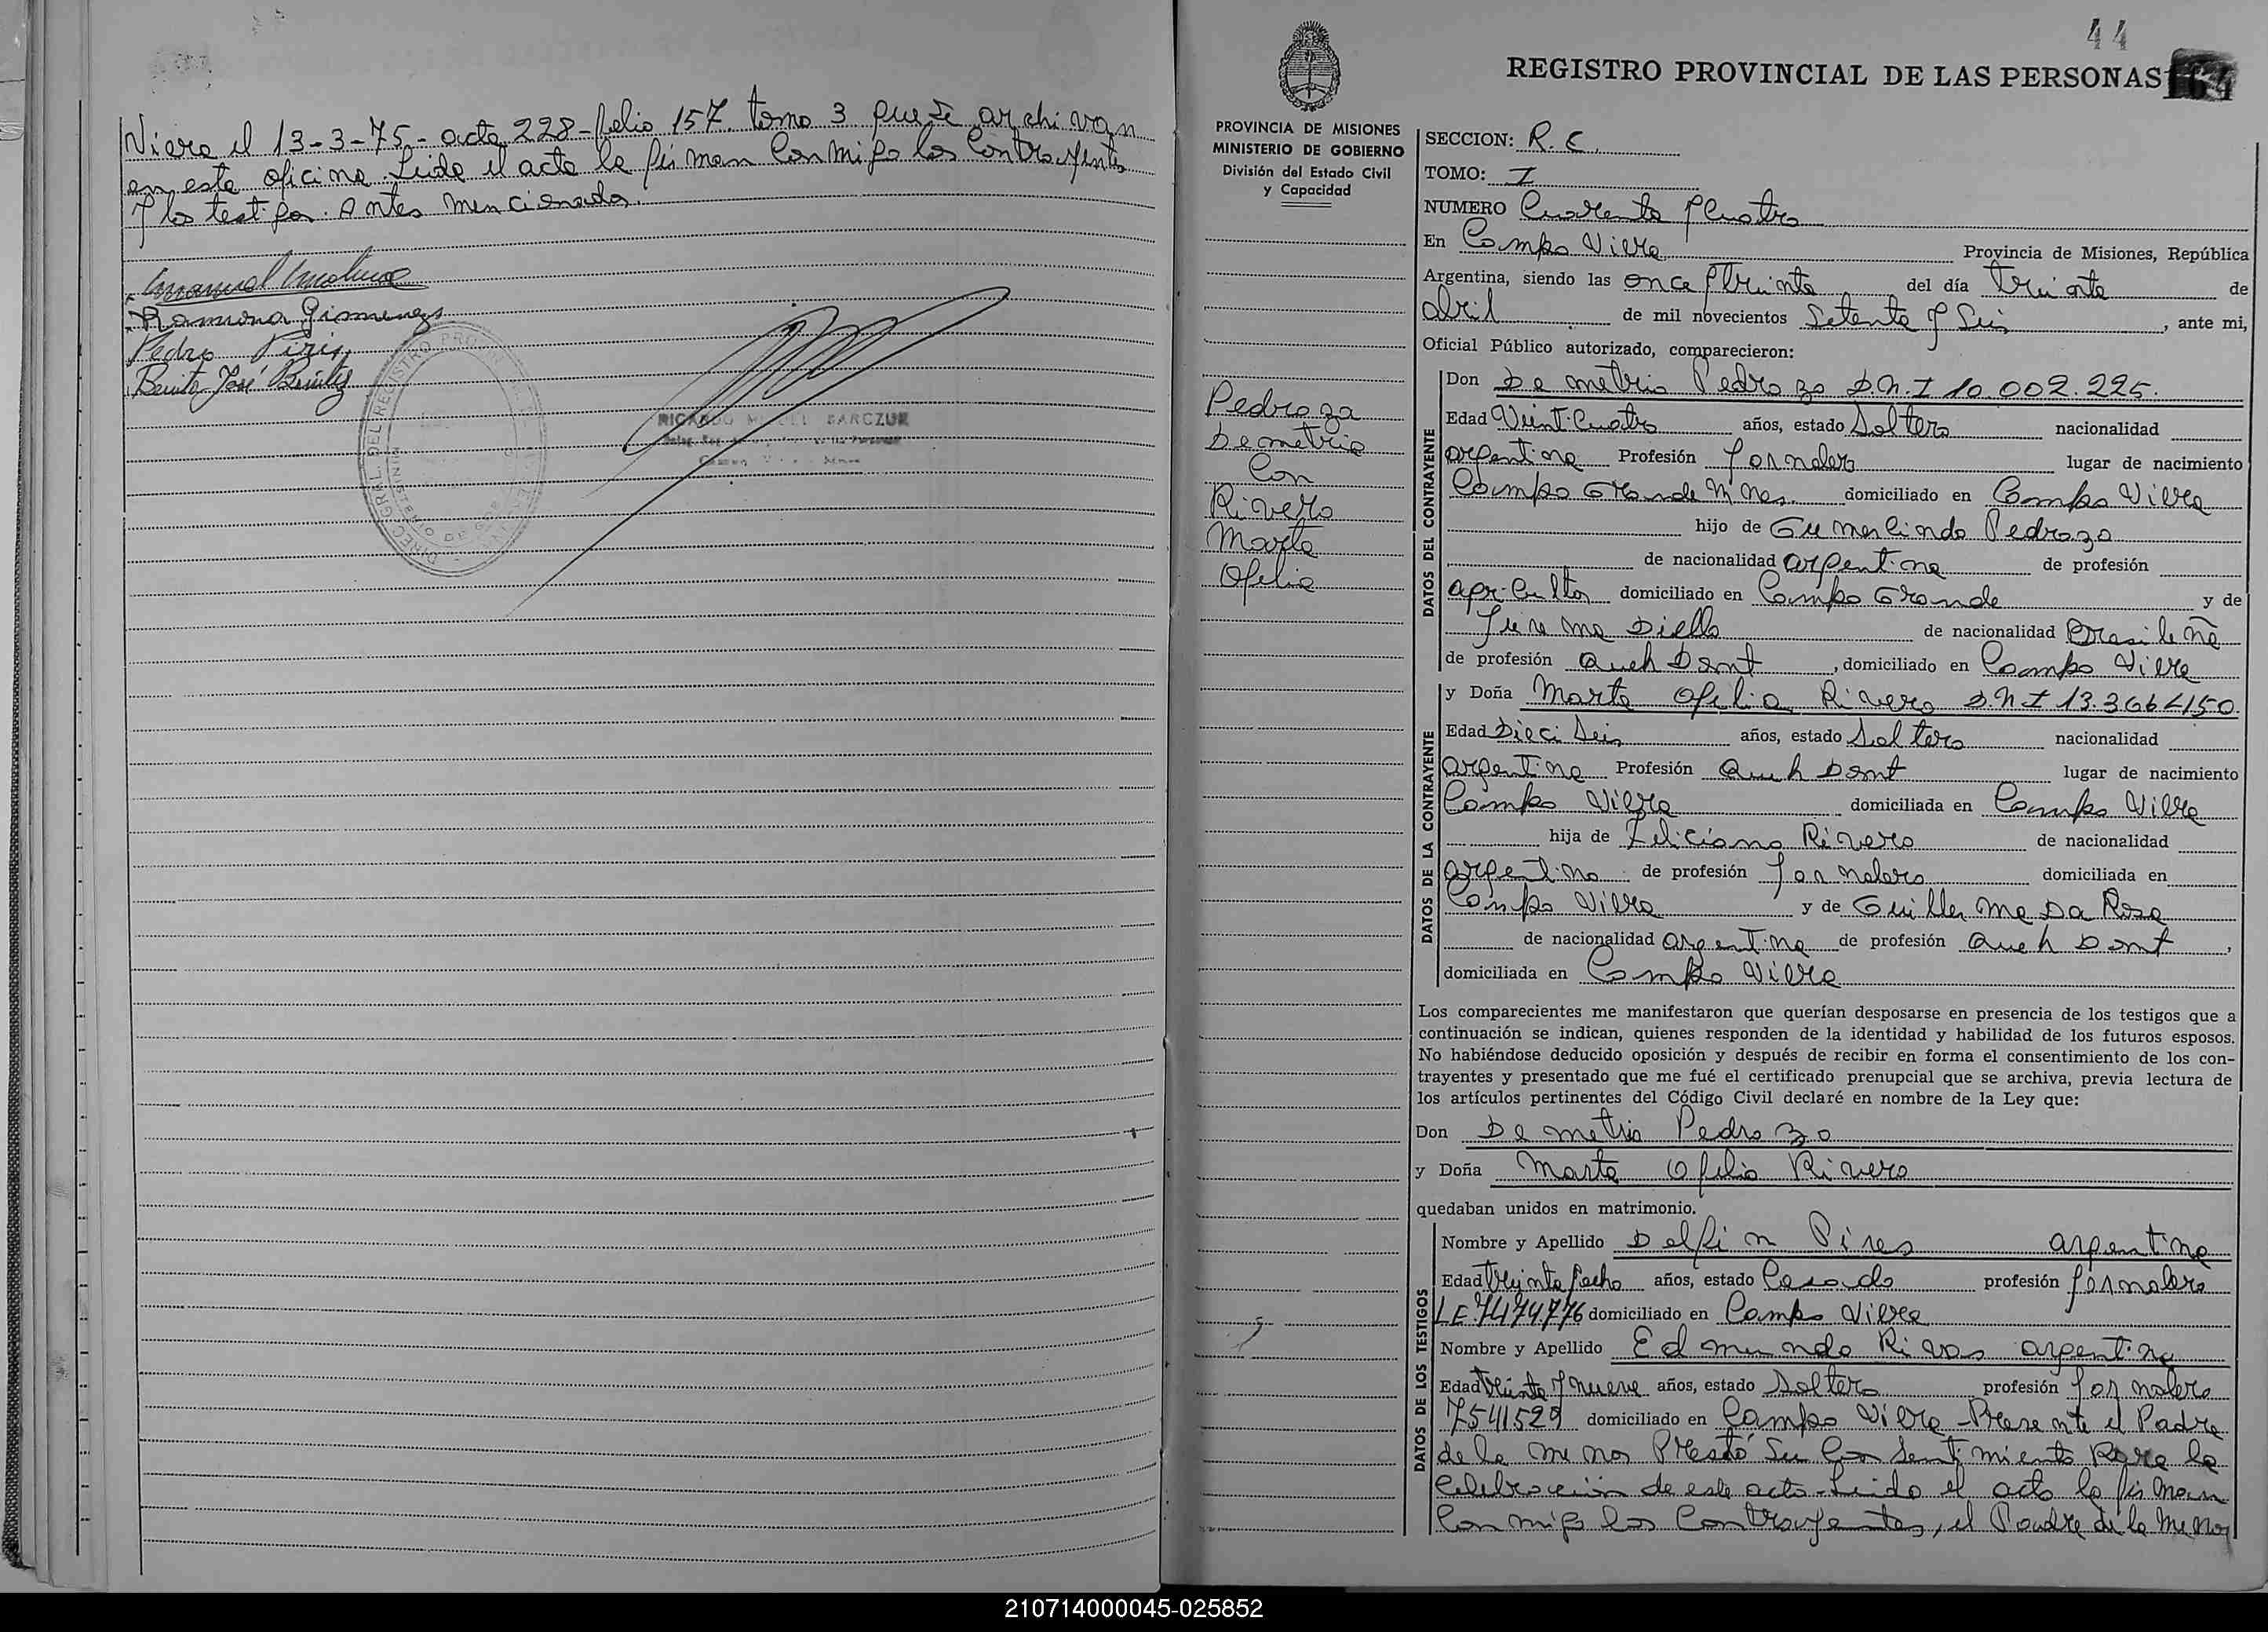 Viera el 13-3-75- acta 228-folio 157 tomo 3 que se archivan
en esta oficina. Leida el acta la firman conmigo los contrayentes
y los testigos antes mencionados.
Manuel
Ramona Gimenez
Pedro Piris
Benito José Benitez
DIREC. GRAL. DEL REGISTRO PROVINCIAL
MINISTERIO DE GOB
RICARDO MIGUEL SARCZUK
44
REGISTRO PROVINCIAL DE LAS PERSONAS
164
PROVINCIA DE MISIONES
MINISTERIO DE GOBIERNO
División del Estado Civil
y Capacidad
Pedrozo
Demetrio
Con
Rivero
Marta
Ofelia
SECCION: R.C.
TOMO: I
NUMERO Cuarenta y Cuatro
En Campo Viera Provincia de Misiones, República
Argentina, siendo las once y treinta del día treinta de
abril de mil novecientos Setenta y Seis, ante mi,
Oficial Público autorizado, comparecieron:
DATOS DEL CONTRAYENTE
Don Demetrio Pedrozo D.N.I 10.002.225.
Edad Veinticuatro años, estado Soltero nacionalidad
argentina Profesión Jornalero lugar de nacimiento
Campo Grande Mnes. domiciliado en Campo Viera
hijo de Gumercindo Pedrozo
de nacionalidad argentina de profesión
agricultor domiciliado en Campo Grande y de
Jurema Diello de nacionalidad Brasileña
de profesión Queh Domt, domiciliado en Campo Viera
DATOS DE LA CONTRAYENTE
y Doña Marta Ofelia Rivero D.N.I 13.366450.
Edad Dieciseis años, estado Soltera nacionalidad
argentina Profesión Queh Domt lugar de nacimiento
Campo Viera domiciliada en Campo Viera
hija de Feliciano Rivero de nacionalidad
argentino de profesión Jornalero domiciliada en
Campo Viera y de Guillerma Da Rosa
de nacionalidad argentina de profesión Queh Domt,
domiciliada en Campo Viera
Los comparecientes me manifestaron que querían desposarse en presencia de los testigos que a
continuación se indican, quienes responden de la identidad y habilidad de los futuros esposos.
No habiéndose deducido oposición y después de recibir en forma el consentimiento de los con-
trayentes y presentado que me fué el certificado prenupcial que se archiva, previa lectura de
los artículos pertinentes del Código Civil declaré en nombre de la Ley que:
Don Demetrio Pedrozo
y Doña Marta Ofelia Rivero
quedaban unidos en matrimonio.
DATOS DE LOS TESTIGOS
Nombre y Apellido Delfin Pires argentino
Edad treinta y ocho años, estado Casado profesión Jornalero
LE.7474.776 domiciliado en Campo Viera
Nombre y Apellido Edmundo Rivas argentino
Edad treinta y nueve años, estado Soltero profesión Jornalero
7541529 domiciliado en Campo Viera - Presente el Padre
de la menor Prestó su consentimiento para la
celebración de este acto. Leida el acta la firman
conmigo los contrayentes, el Padre de la menor
210714000045-025852